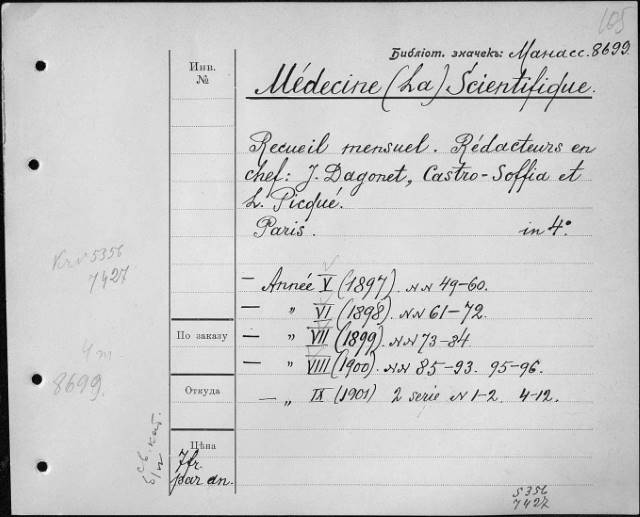 105
Библіот. значекъ: Манасс. 8699.
Инв.
№
Médecine (La) Scientifique.
Recueil mensuel. Rédacteurs en
chef: J. Dagonet, Castro-Soffia et
L. Picqué.
Paris. in 4°.
5356
7427
— Année V (1897). NN 49-60.
— " VI (1898). NN 61-72.
— " VII (1899). NN 73-84
— " VIII (1900). NN 85-93. 95-96.
— " IX (1901) 2 serie N 1-2. 4-12.
По заказу
4 т
8699.
Откуда
Цѣна
7 fr.
par an.
Св. кат.
5356
7427